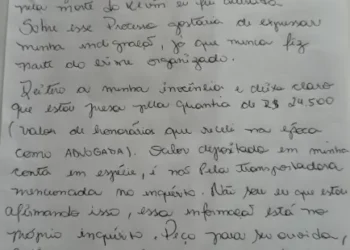 pela morte do Kevin eu fui
Sobre esse Processo gostaria de expressar
minha indignação, já que nunca fiz
parte do crime organizado.
Reitero a minha inocência e deixo claro
que estou presa pela quantia de R$ 24.500
(valor de honorário que recebi na época
como ADVOGADA). Valor depositado em minha
conta em espécie, e não pela transportadora
mencionada no inquérito. Não sou eu que estou
afirmando isso, essa informação está no
próprio inquérito. Peço para ser ouvida,